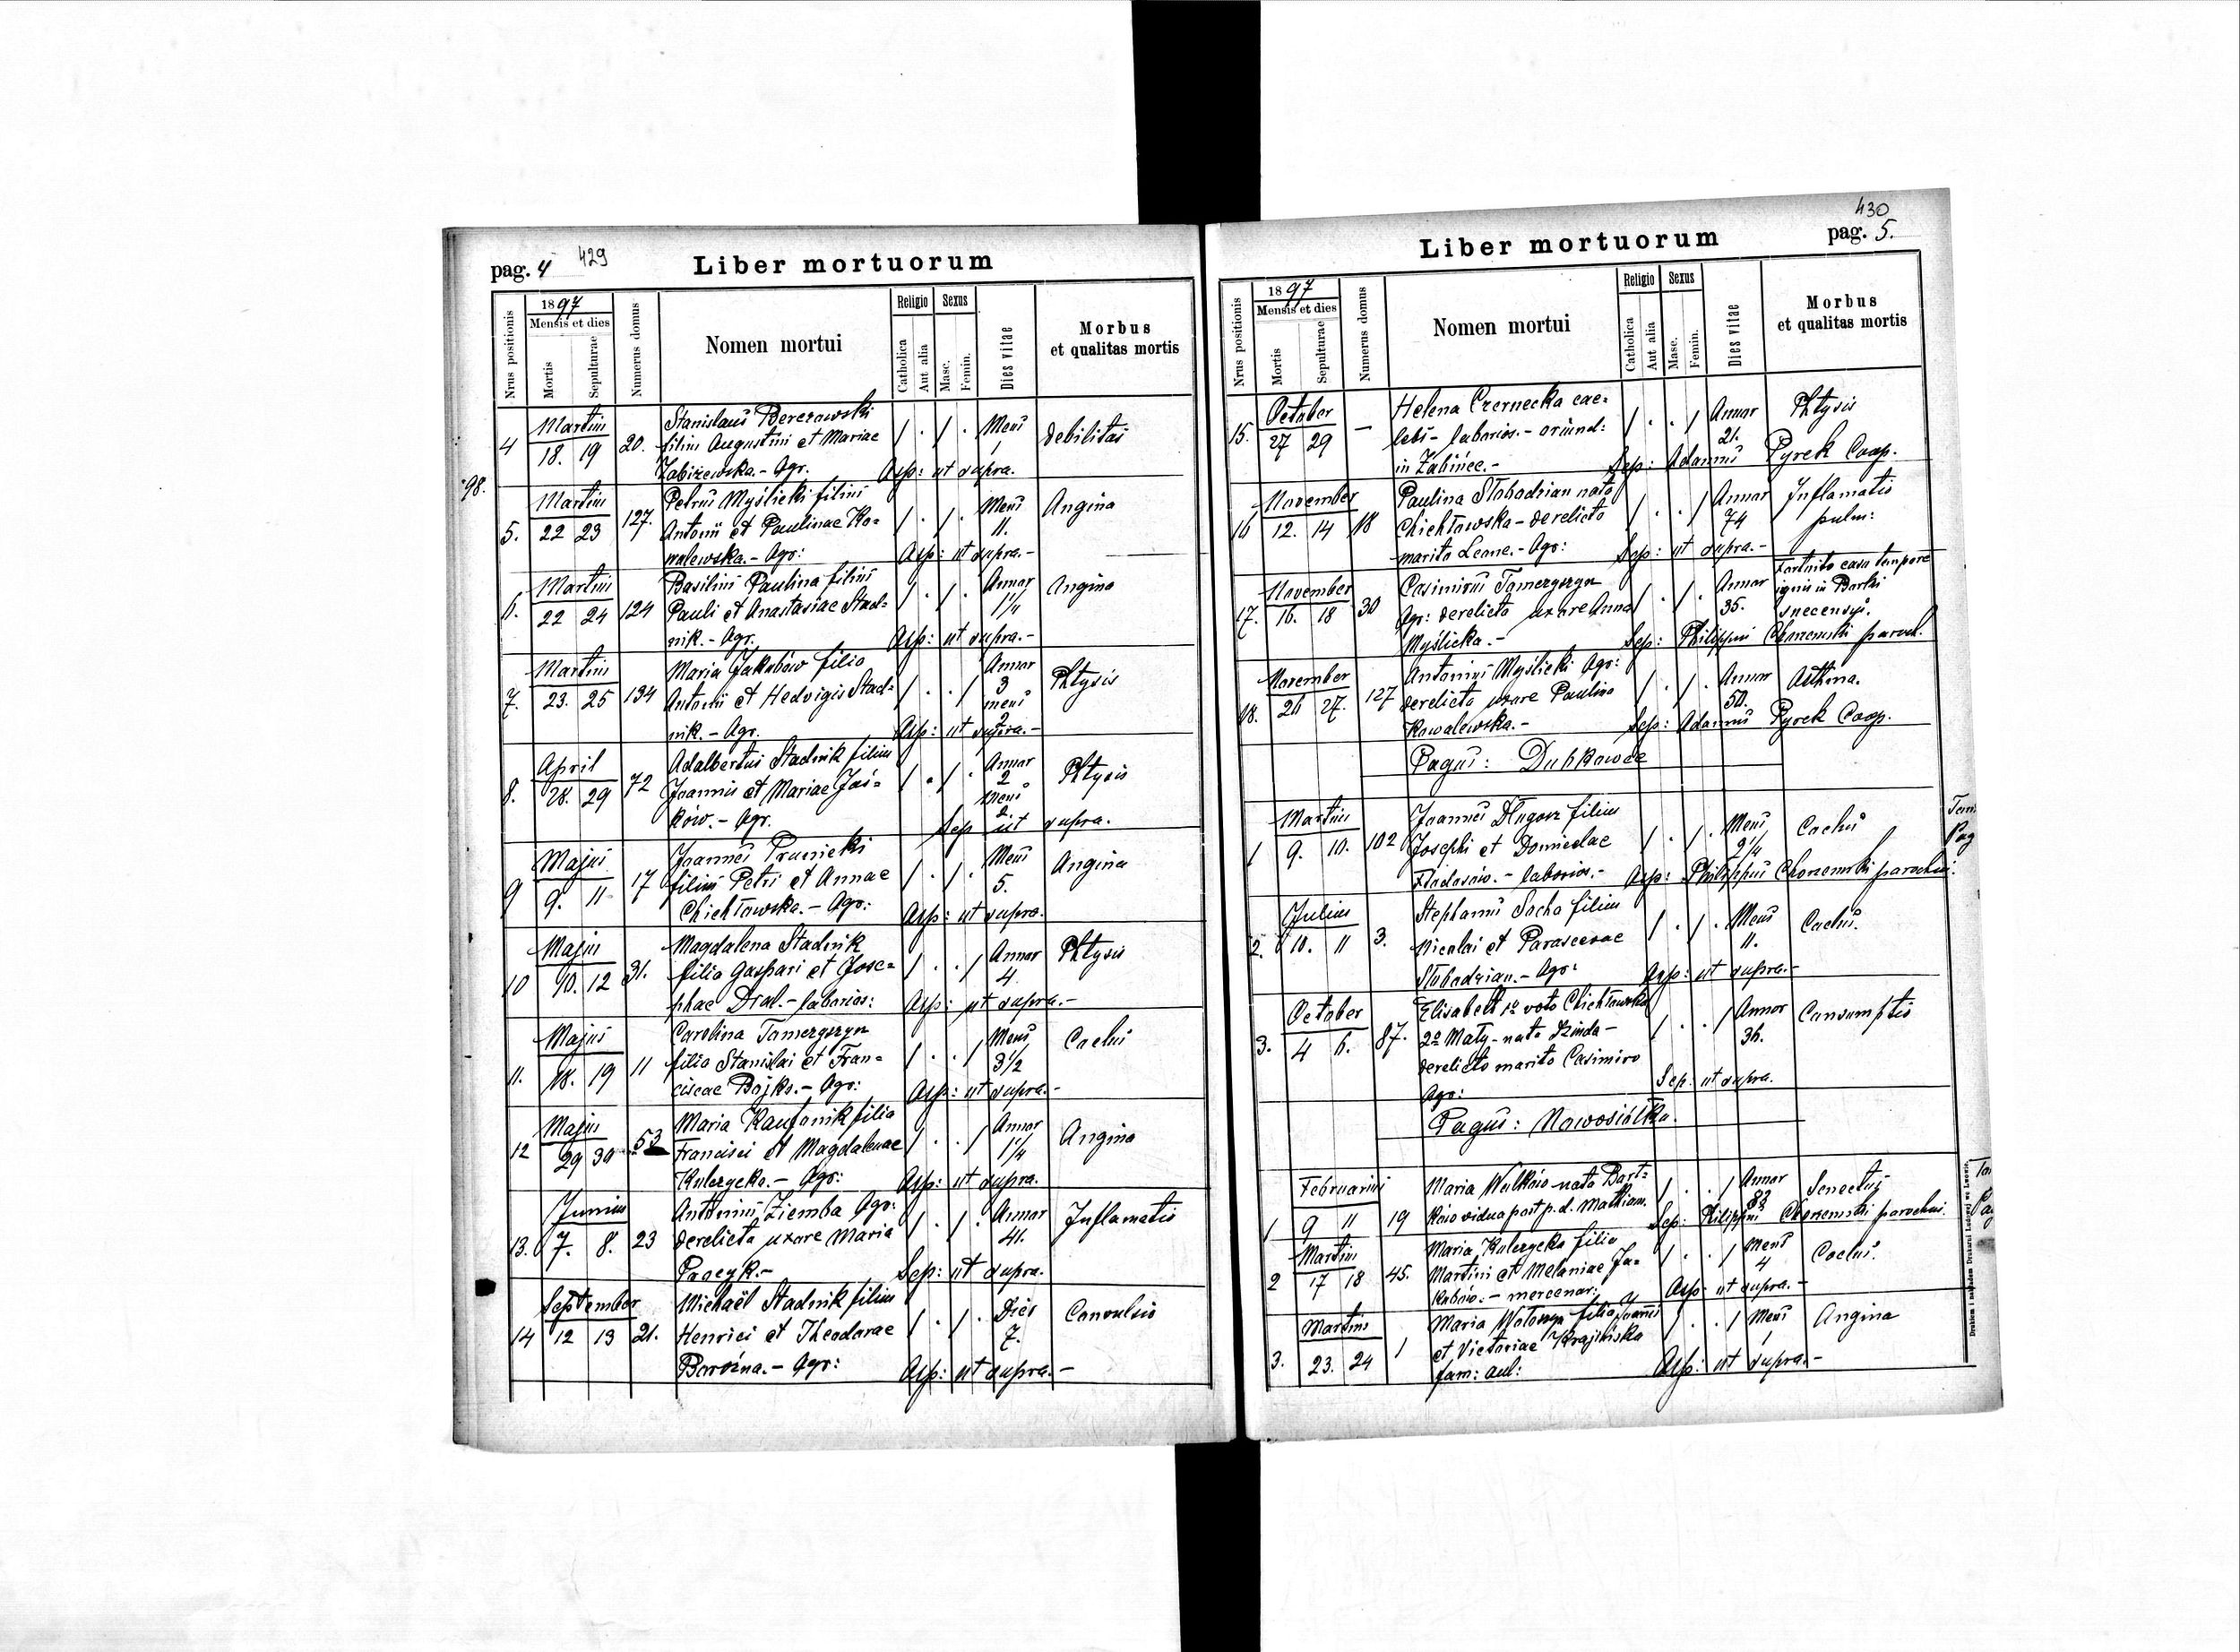 pag. 4 429
Liber mortuorum
Nrus positionis
1897
Mensis et dies
Mortis
Sepulturae
Numerus domus
Nomen mortui
Religio
Catholica
Aut alia
Sexus
Masc.
Femin.
Dies vitae
Morbus
et qualitas mortis
4 Martius 18. 19 20. Stanislaus Berezowski / . / . Mens 1 debilitas
filius Augustini et Mariae
Zabizewska. - Agr. Asp: ut supra.
98.
5. Martius 22 23 127. Petrus Myślicki filius / . / . Mens 11. Angina
Antonii et Paulinae Ko=
walewska. - Agr: Asp: ut supra. -
6. Martius 22 24 124 Basilius Paulina filius / . / . Annor 1 1/4 Angina
Pauli et Anastasiae Stad=
nik. - Agr. Asp: ut supra. -
7. Martius 23. 25 134 Maria Jakubów filia / . . / Annor 3 mens 2 Phtysis
Antonii et Hedvigis Stad=
nik. - Agr. Asp: ut supra. -
8. April 28. 29 72 Adalbertus Stadnik filius / . / . Annor 2 Mens 2. Phtysis
Joannis et Mariae Jaś=
ków. - Agr. Sep ut supra.
9 Majus 9. 11 17 Joannes Prunicki / . / . Mens 5. Angina
filius Petri et Annae
Chichłowska. - Agr: Asp: ut supra.
10 Majus 10. 12 31. Magdalena Stadnik / . . / Annor 4 Phtysis
filia Gaspari et Jose=
phae Dral. - laborios: Asp: ut supra. -
11. Majus 18. 19 11 Carolina Tamergszyn / . . / Mens 3 1/2 Cachus
filia Stanislai et Fran=
ciscae Bojko. - Agr: Asp: ut supra. -
12 Majus 29 30 53 Maria filia / . . / Annor 1 1/4 Angina
Francisci et Magdalenae
Kulczycka. - Agr: Asp: ut supra.
13. Junius 7. 8. 23 Antonius Ziemba Agr: / . / . Annor 41. Inflamatis
derelicta uxore Maria
Sep: ut supra.
14 September 12 13 21. Michaël Stadnik filius / . / . Dies 7. Convulsio
Henrici et Theodorae
Agr: Asp: ut supra. -
430
pag. 5.
Liber mortuorum
Nrus positionis
1897
Mensis et dies
Mortis
Sepulturae
Numerus domus
Nomen mortui
Religio
Catholica
Aut alia
Sexus
Masc.
Femin.
Dies vitae
Morbus
et qualitas mortis
15. October 27 29 - Helena Czernecka cae= / . . / Annor 21. Phtysis
lebs - laborios. - oriund:
in Żabińce. - Sep: Adamus Pyrek Coop.
16 November 12. 14 18 Paulina Słobodzian nata / . . / Annor 74 Inflamatis
Chichłowska - derelicto pulm:
marito Leone. - Agr: Sep: ut supra. -
17. November 16. 18 30 Casimirus Tamergszyn / . / . Annor 35. Fortuito casu tempore
Agr: derelicta uxore Anna ignis in Barki
Myślicka. - sucensus.
Sep: Philippus Chorzemski paroch.
18. November 26 27. 127 Antonius Myślicki Agr: / . / . Annor 50. Asthma.
derelicta uxore Paulina
Kowalewska. - Sep: Adamus Pyrek Coop.
Pagus: Dubkowce
1 Martius 9. 10. 102 Joannes Długosz filius / . / . Mens 2 1/4 Cachus
Josephi et Domicelae
laborios. - Asp: Philippus Chorzemski parochus.
2. Julius 10. 11 3. Stephanus Socha filius / . / . Mens 11. Cachus.
Nicolai et Parascevae
Słobodzian. - Agr: Asp: ut supra. -
3. October 4 6. 87. Elisabeth 1º voto Chichłowska / . . / Annor 36. Consumptis
2º Maty - nata Linda -
derelicto marito Casimiro
Agr: Sep: ut supra.
Pagus: Nowosiółka.
1 Februarius 9 11 19 Maria Wulków nata Bart= / . . / Annor 83 Senectus
ków vidua post p. d. Mathiam. Sep: Philippus Chorzemski parochus.
2 Martius 17 18 45. Maria Kulczycka filia / . . / Mens 4 Cachus.
Martini et Melaniae Ja=
kubów. - mercenar: Asp: ut supra. -
3. Martius 23. 24 1 Maria Wołoszyn filia Joannis / . . / Mens 1 Angina
et Victoriae Krajińska
fam: aul: Asp: ut supra. -
Drukiem i nakładem Drukarni Ludowej we Lwowie.